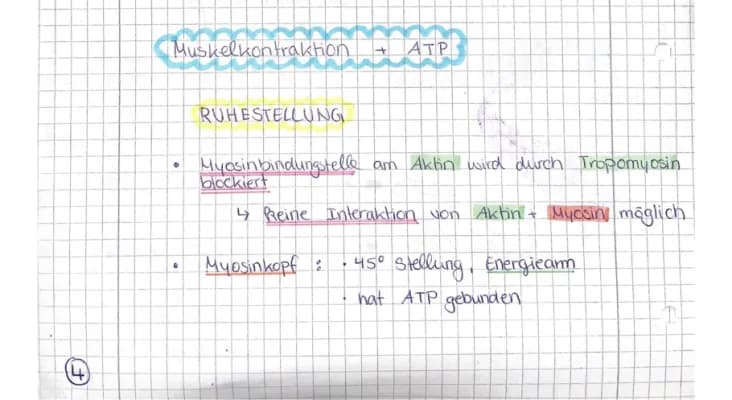 Muskelkontraktion + ATP
RUHESTELLUNG
• Myosinbindungstelle am Aktin wird durch Tropomyosin
blockiert
↳ Keine Interaktion von Aktin + Myosin möglich
• Myosinkopf : · 45° Stellung, Energiearm
· hat ATP gebunden
4